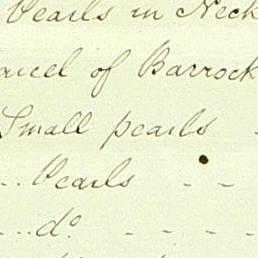 Pearls in Neck
arcel of Barrock
Small pearls -
... Pearls - -
... do - - - -